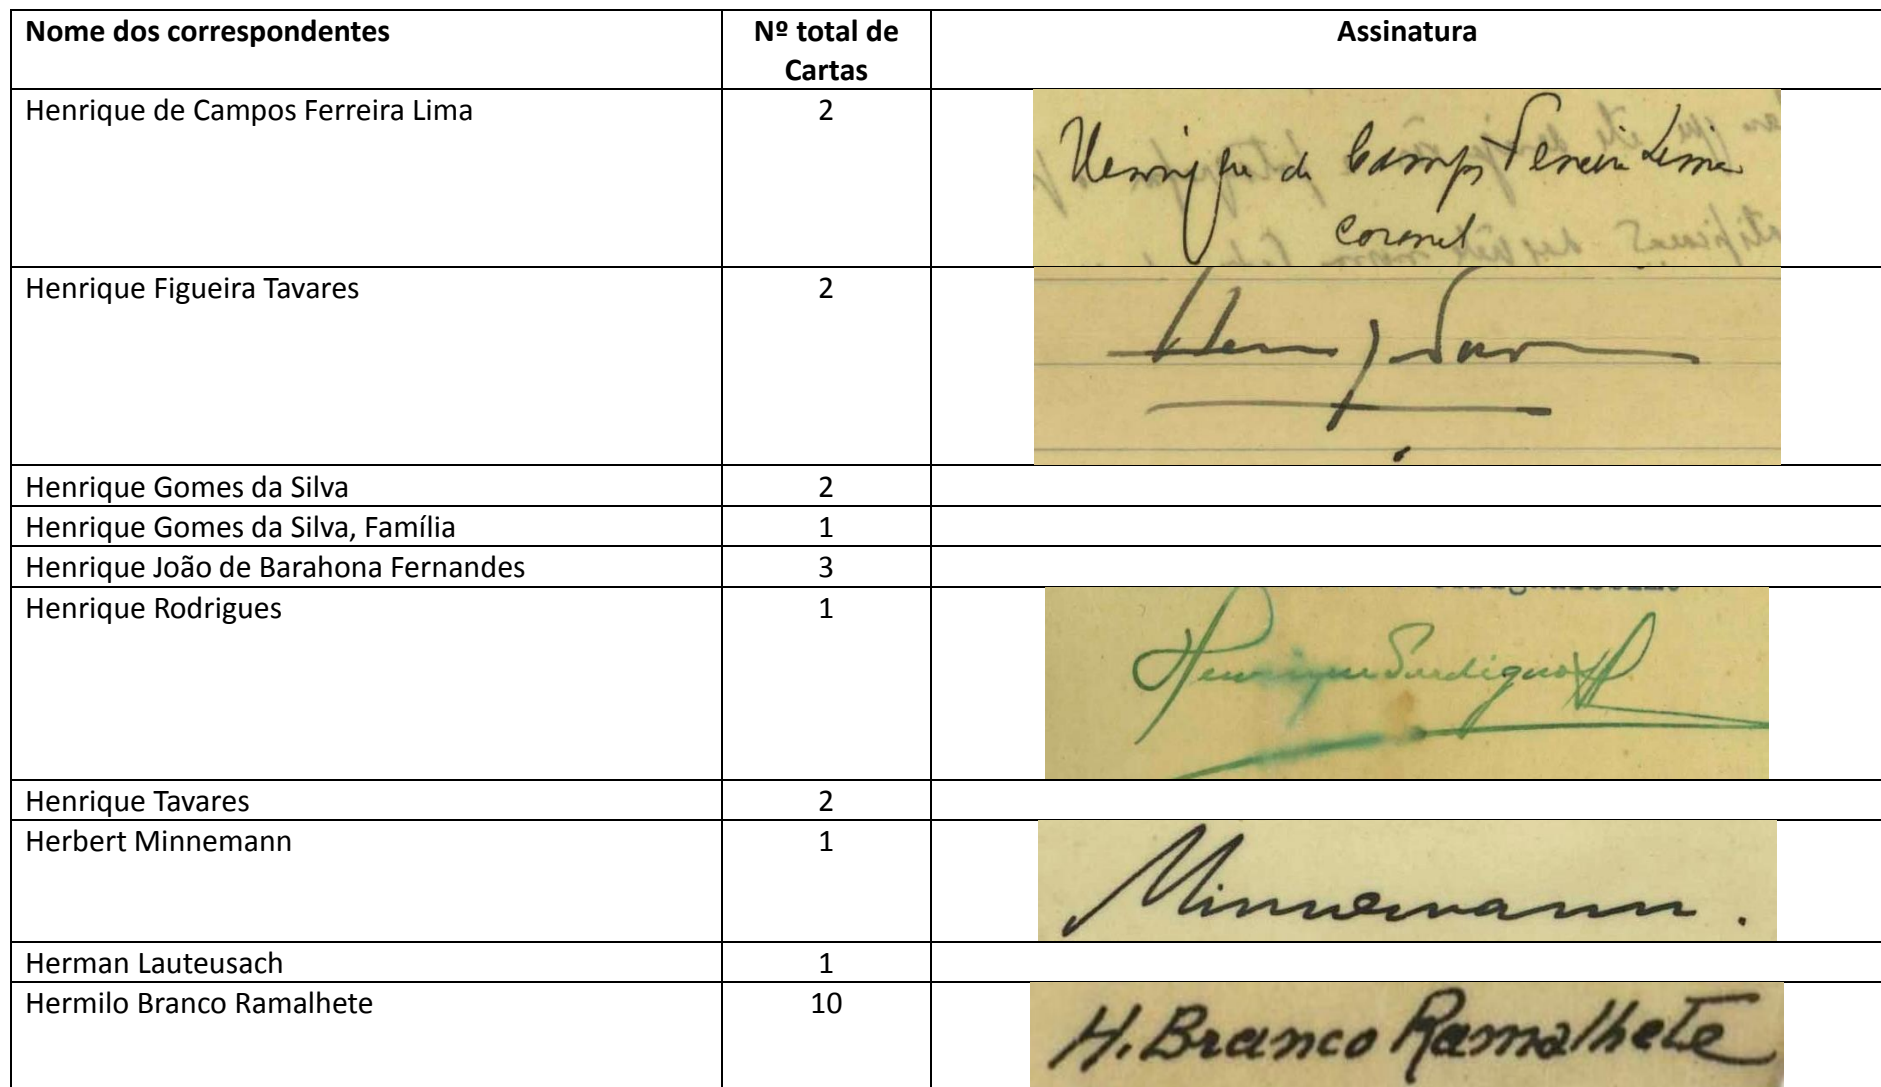 Nome dos correspondentes
Nº total de
Cartas
Assinatura
Henrique de Campos Ferreira Lima
2
Henrique de Campos Ferreira Lima
Coronel
Henrique Figueira Tavares
2
Henrique Gomes da Silva
2
Henrique Gomes da Silva, Família
1
Henrique João de Barahona Fernandes
3
Henrique Rodrigues
1
Henrique Rodrigues
Henrique Tavares
2
Herbert Minnemann
1
Minnemann.
Herman Lauteusach
1
Hermilo Branco Ramalhete
10
H. Branco Ramalhete